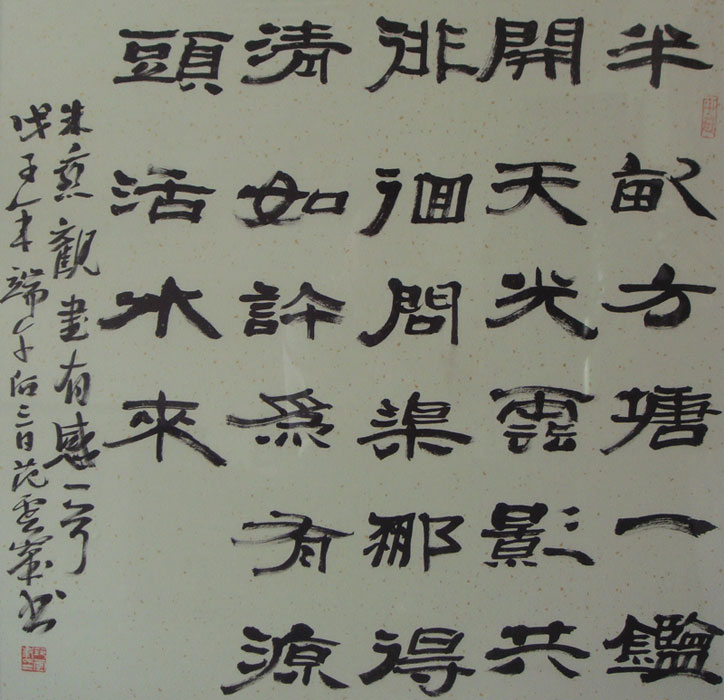 半畝方塘一鑑
開天光雲影共
徘徊問渠那得
清如許為有源
頭活水來
朱熹觀書有感一首
戊子年端午后三日范雲寀書